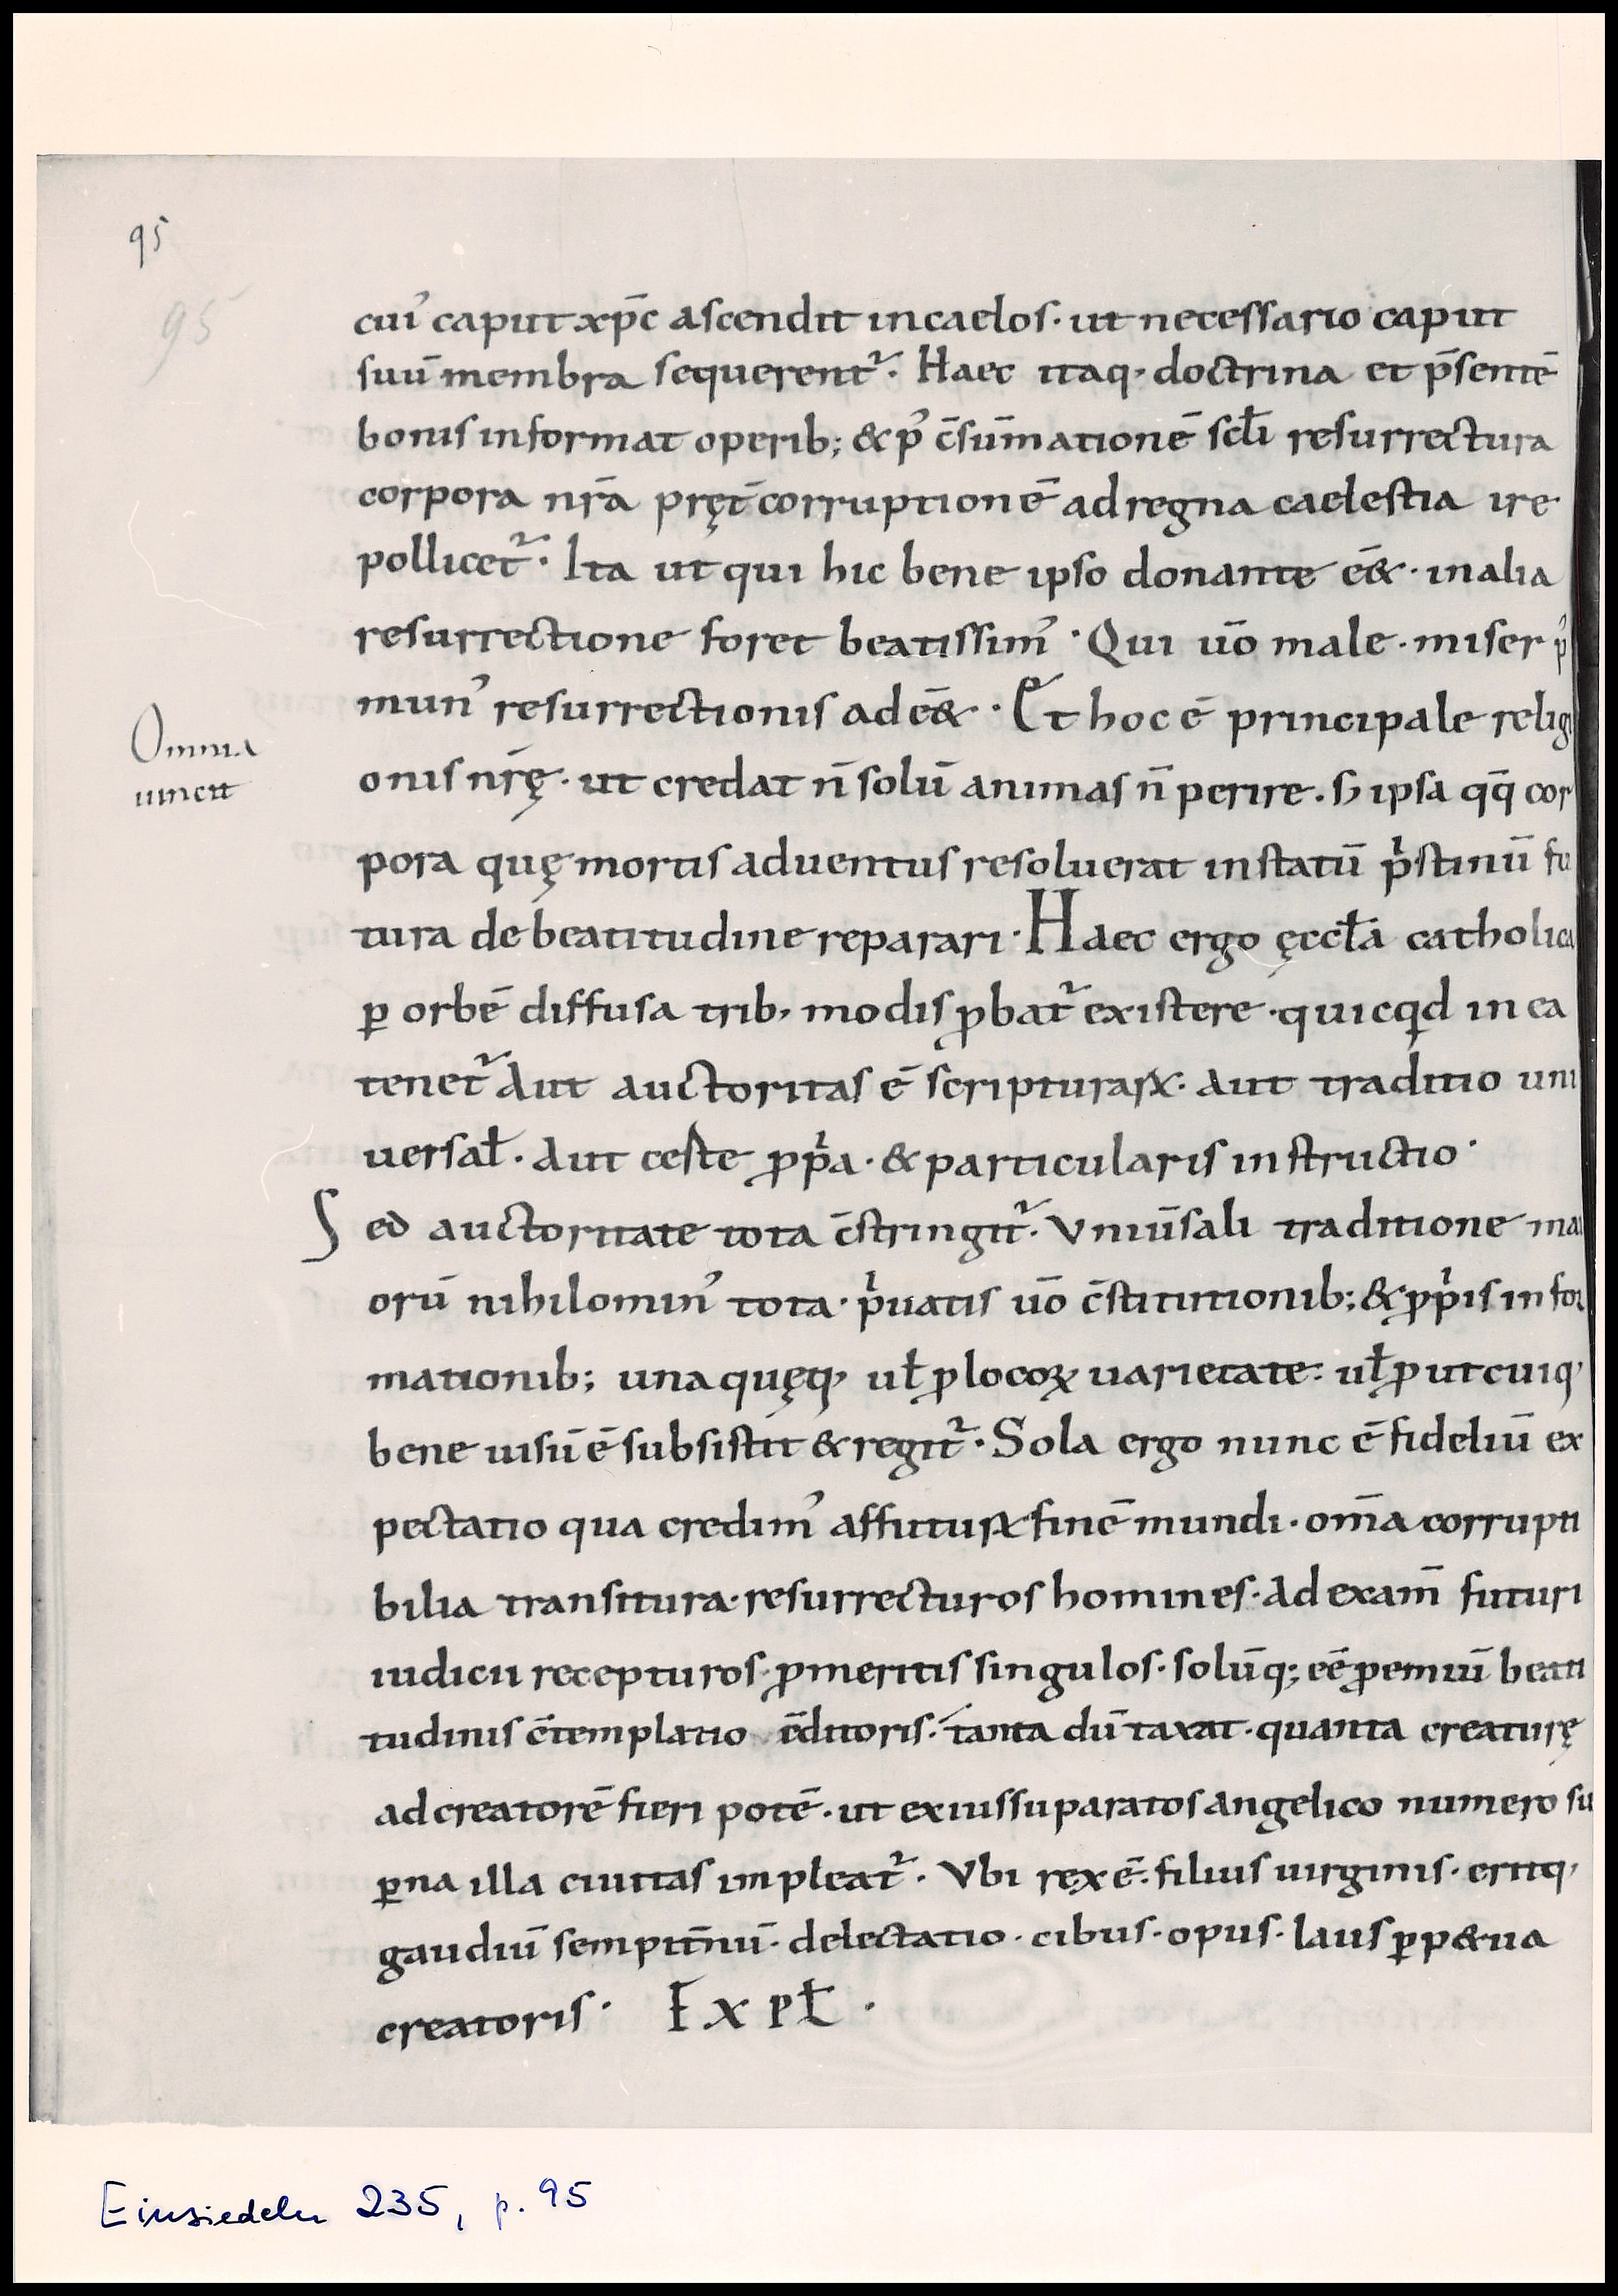 95
95
cui᾿ caput xp̄c ascendit in caelos · ut necessario caput
suū membra sequerent᷑ · Haec itaq· doctrina et p̄sentē
bonis informat operib; & p᾿ c̄sūmationē scłi resurrectura
corpora nr̄a pręt̄ corruptionē ad regna caelestia ire
pollicet᷑ · Ita ut qui hic bene ipso donante ēē& · in alia
resurrectione foret beatissim᾿ · Qui uō male · miser p᾿
mun᾿ resurrectionis adē& · Et hoc ē principale religi
Omnia
uincit
onis nr̄ę · ut credat n̄ solū animas n̄ perire · sꝫ ipsa qq̄ cor
pora quę mortis aduentus resoluerat in statū pͥstinū fu
tura de beatitudine reparari · Haec ergo ęccła catholica
ꝑ orbē diffusa trib· modis ꝓbat᷑ existere · quicqͥd in ea
tenet᷑ Aut auctoritas ē scripturaꝝ · Aut traditio uni
uersał · Aut ceste ꝓpͥa · & particularis instructio ·
Sed auctoritate tota c̄stringit᷑ · Vniūsali traditione mai
orū nihilomin᾿ tota · pͥuatis uō c̄stitutionib; & ꝓpͥis infor
mationib; una quęq· uł ꝓ locoꝝ uarietate · uł ꝓut cuiq·
bene uisū ē subsistit & regit᷑ · Sola ergo nunc ē fideliū ex
pectatio qua credim᾿ affuturꝝ finē mundi · om̄a corrupti
bilia transitura · resurrecturos homines · Ad exam̄ futuri
iudicii recepturos · ꝓ meritis singulos · solūq; eē p̄emiū beati
tudinis c̄templatio c̄ditoris · tanta dū taxat · quanta creaturę
ad creatorē fieri potē · ut ex iussu paratos angelico numero su
ꝑna illa ciuitas impleat᷑ · Vbi rex ē · filius uirginis · eritq·
gaudiū sempit̄nū · delectatio · cibus · opus · laus ꝑp&ua
creatoris · Expł ·
Einsiedeln 235, p. 95